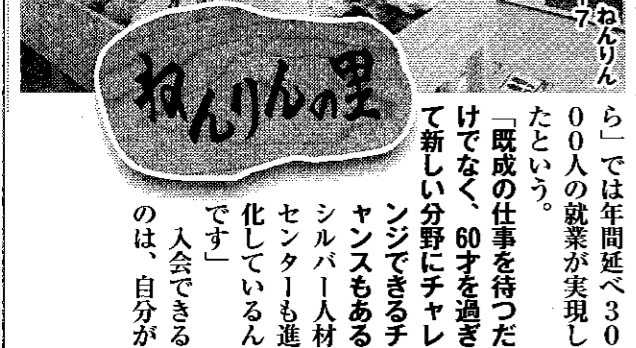 ねんりん
-7
ねんりんの里
ら」では年間延べ30
00人の就業が実現し
たという。
「既成の仕事を待つだ
けでなく、60才を過ぎ
て新しい分野にチャレ
ンジできるチ
ャンスもある
シルバー人材
センターも進
化しているん
です」
入会できる
のは、自分が